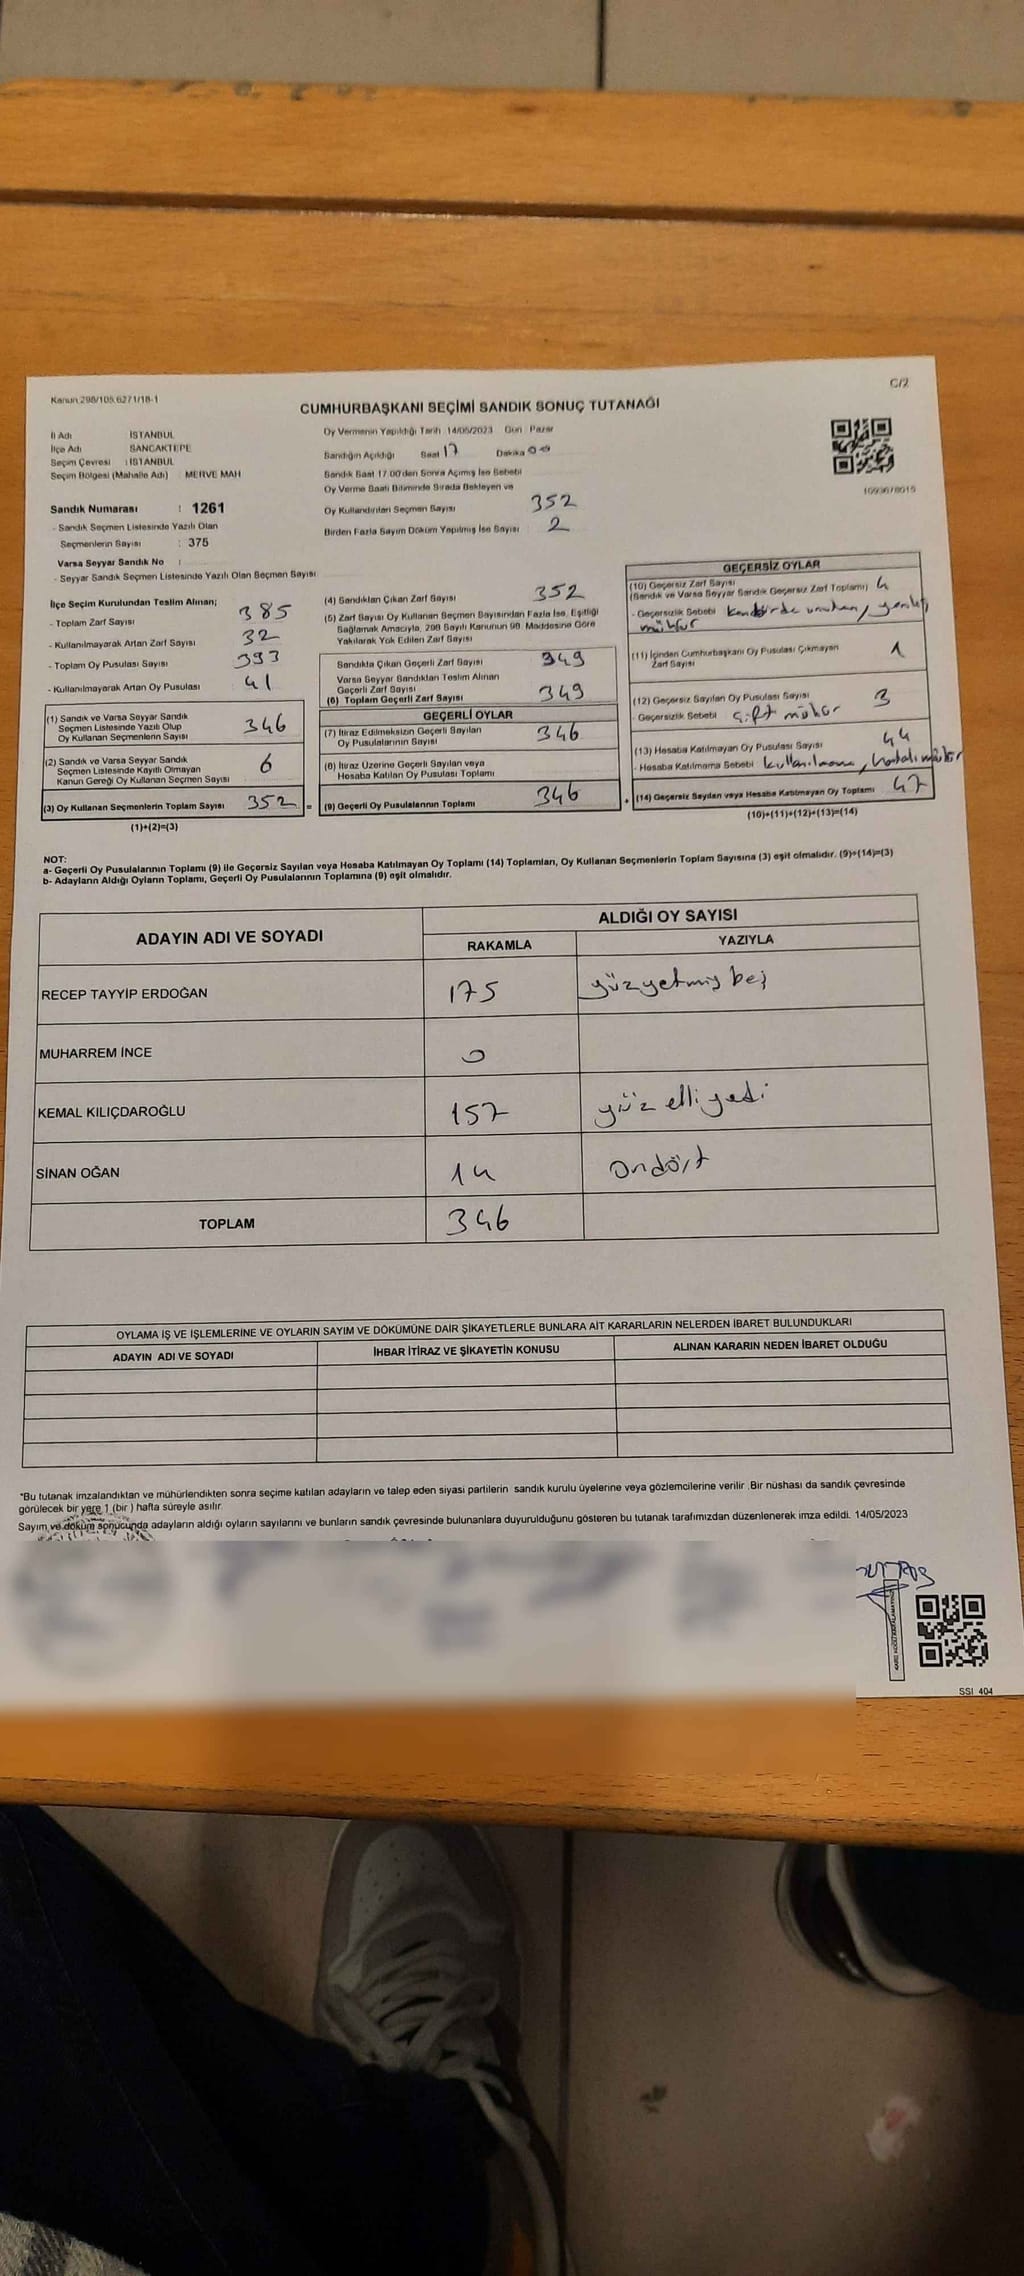 Kanun:298/105,6271/18-1
C/2
CUMHURBAŞKANI SEÇİMİ SANDIK SONUÇ TUTANAĞI
İl Adı İSTANBUL
İlçe Adı SANCAKTEPE
Seçim Çevresi : İSTANBUL
Seçim Bölgesi (Mahalle Adı) : MERVE MAH
Sandık Numarası : 1261
- Sandık Seçmen Listesinde Yazılı Olan
Seçmenlerin Sayısı : 375
Varsa Seyyar Sandık No :
- Seyyar Sandık Seçmen Listesinde Yazılı Olan Seçmen Sayısı
Oy Vermenin Yapıldığı Tarih : 14/05/2023 Gün : Pazar
Sandığın Açıldığı Saat 17 Dakika
Sandık Saat 17.00'den Sonra Açımış İse Sebebi
Oy Verme Saati Bitiminde Sırada Bekleyen ve
Oy Kullandırılan Seçmen Sayısı 352
Birden Fazla Sayım Döküm Yapılmış İse Sayısı : 2
İlçe Seçim Kurulundan Teslim Alınan;
- Toplam Zarf Sayısı 385
- Kullanılmayarak Artan Zarf Sayısı 32
- Toplam Oy Pusulası Sayısı 393
- Kullanılmayarak Artan Oy Pusulası 41
(1) Sandık ve Varsa Seyyar Sandık
Seçmen Listesinde Yazılı Olup
Oy Kullanan Seçmenlerin Sayısı 346
(2) Sandık ve Varsa Seyyar Sandık
Seçmen Listesinde Kayıtlı Olmayan
Kanun Gereği Oy Kullanan Seçmen Sayısı 6
(3) Oy Kullanan Seçmenlerin Toplam Sayısı 352 =
(1)+(2)=(3)
(4) Sandıktan Çıkan Zarf Sayısı 352
(5) Zarf Sayısı Oy Kullanan Seçmen Sayısından Fazla İse, Eşitliği
Sağlamak Amacıyla, 298 Sayılı Kanunun 98. Maddesine Göre
Yakılarak Yok Edilen Zarf Sayısı
Sandıkta Çıkan Geçerli Zarf Sayısı 349
Varsa Seyyar Sandıktan Teslim Alınan
Geçerli Zarf Sayısı
(6) Toplam Geçerli Zarf Sayısı 349
GEÇERLİ OYLAR
(7) İtiraz Edilmeksizin Geçerli Sayılan
Oy Pusulalarının Sayısı 346
(8) İtiraz Üzerine Geçerli Sayılan veya
Hesaba Katılan Oy Pusulası Toplamı
(9) Geçerli Oy Pusulalarının Toplamı 346
GEÇERSİZ OYLAR
(10) Geçersiz Zarf Sayısı
(Sandık ve Varsa Seyyar Sandık Geçersiz Zarf Toplamı) 4
- Geçersizlik Sebebi
mühür
(11) İçinden Cumhurbaşkanı Oy Pusulası Çıkmayan
Zarf Sayısı 1
(12) Geçersiz Sayılan Oy Pusulası Sayısı 3
- Geçersizlik Sebebi çift mühür
(13) Hesaba Katılmayan Oy Pusulası Sayısı 44
- Hesaba Katılmama Sebebi kullanılmama, hatalı mühür
(14) Geçersiz Sayılan veya Hesaba Katılmayan Oy Toplamı 47
(10)+(11)+(12)+(13)=(14)
NOT:
a- Geçerli Oy Pusulalarının Toplamı (9) ile Geçersiz Sayılan veya Hesaba Katılmayan Oy Toplamı (14) Toplamları, Oy Kullanan Seçmenlerin Toplam Sayısına (3) eşit olmalıdır. (9)+(14)=(3)
b- Adayların Aldığı Oyların Toplamı, Geçerli Oy Pusulalarının Toplamına (9) eşit olmalıdır.
ADAYIN ADI VE SOYADI
ALDIĞI OY SAYISI
RAKAMLA YAZIYLA
RECEP TAYYİP ERDOĞAN 175 yüzyetmiş beş
MUHARREM İNCE 0
KEMAL KILIÇDAROĞLU 157 yüz elli yedi
SİNAN OĞAN 14 ondört
TOPLAM 346
OYLAMA İŞ VE İŞLEMLERİNE VE OYLARIN SAYIM VE DÖKÜMÜNE DAİR ŞİKAYETLERLE BUNLARA AİT KARARLARIN NELERDEN İBARET BULUNDUKLARI
ADAYIN ADI VE SOYADI İHBAR İTİRAZ VE ŞİKAYETİN KONUSU ALINAN KARARIN NEDEN İBARET OLDUĞU
*Bu tutanak imzalandıktan ve mühürlendikten sonra seçime katılan adayların ve talep eden siyasi partilerin sandık kurulu üyelerine veya gözlemcilerine verilir. Bir nüshası da sandık çevresinde
görülecek bir yere 1 (bir ) hafta süreyle asılır
Sayım ve döküm sonucunda adayların aldığı oyların sayılarını ve bunların sandık çevresinde bulunanlara duyurulduğunu gösteren bu tutanak tarafımızdan düzenlenerek imza edildi. 14/05/2023
SSI 404